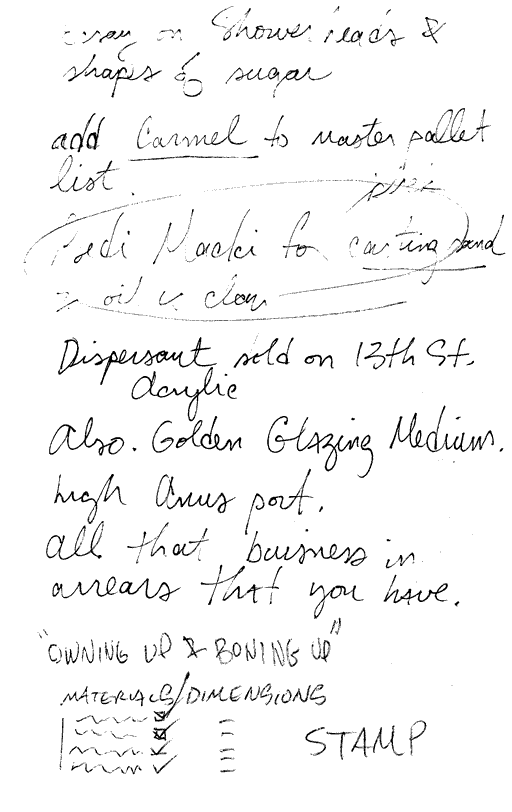 on Shower heads &
shapes of sugar
add Carmel to master pallet
list.
Macki for casting sand
oil
Dispersant sold on 13th St.
Acrylic
Also. Golden Glazing Medium.
high Anus port.
all that buisness in
arrears that you have.
"OWNING UP & BONING UP"
MATERIALS/DIMENSIONS
STAMP